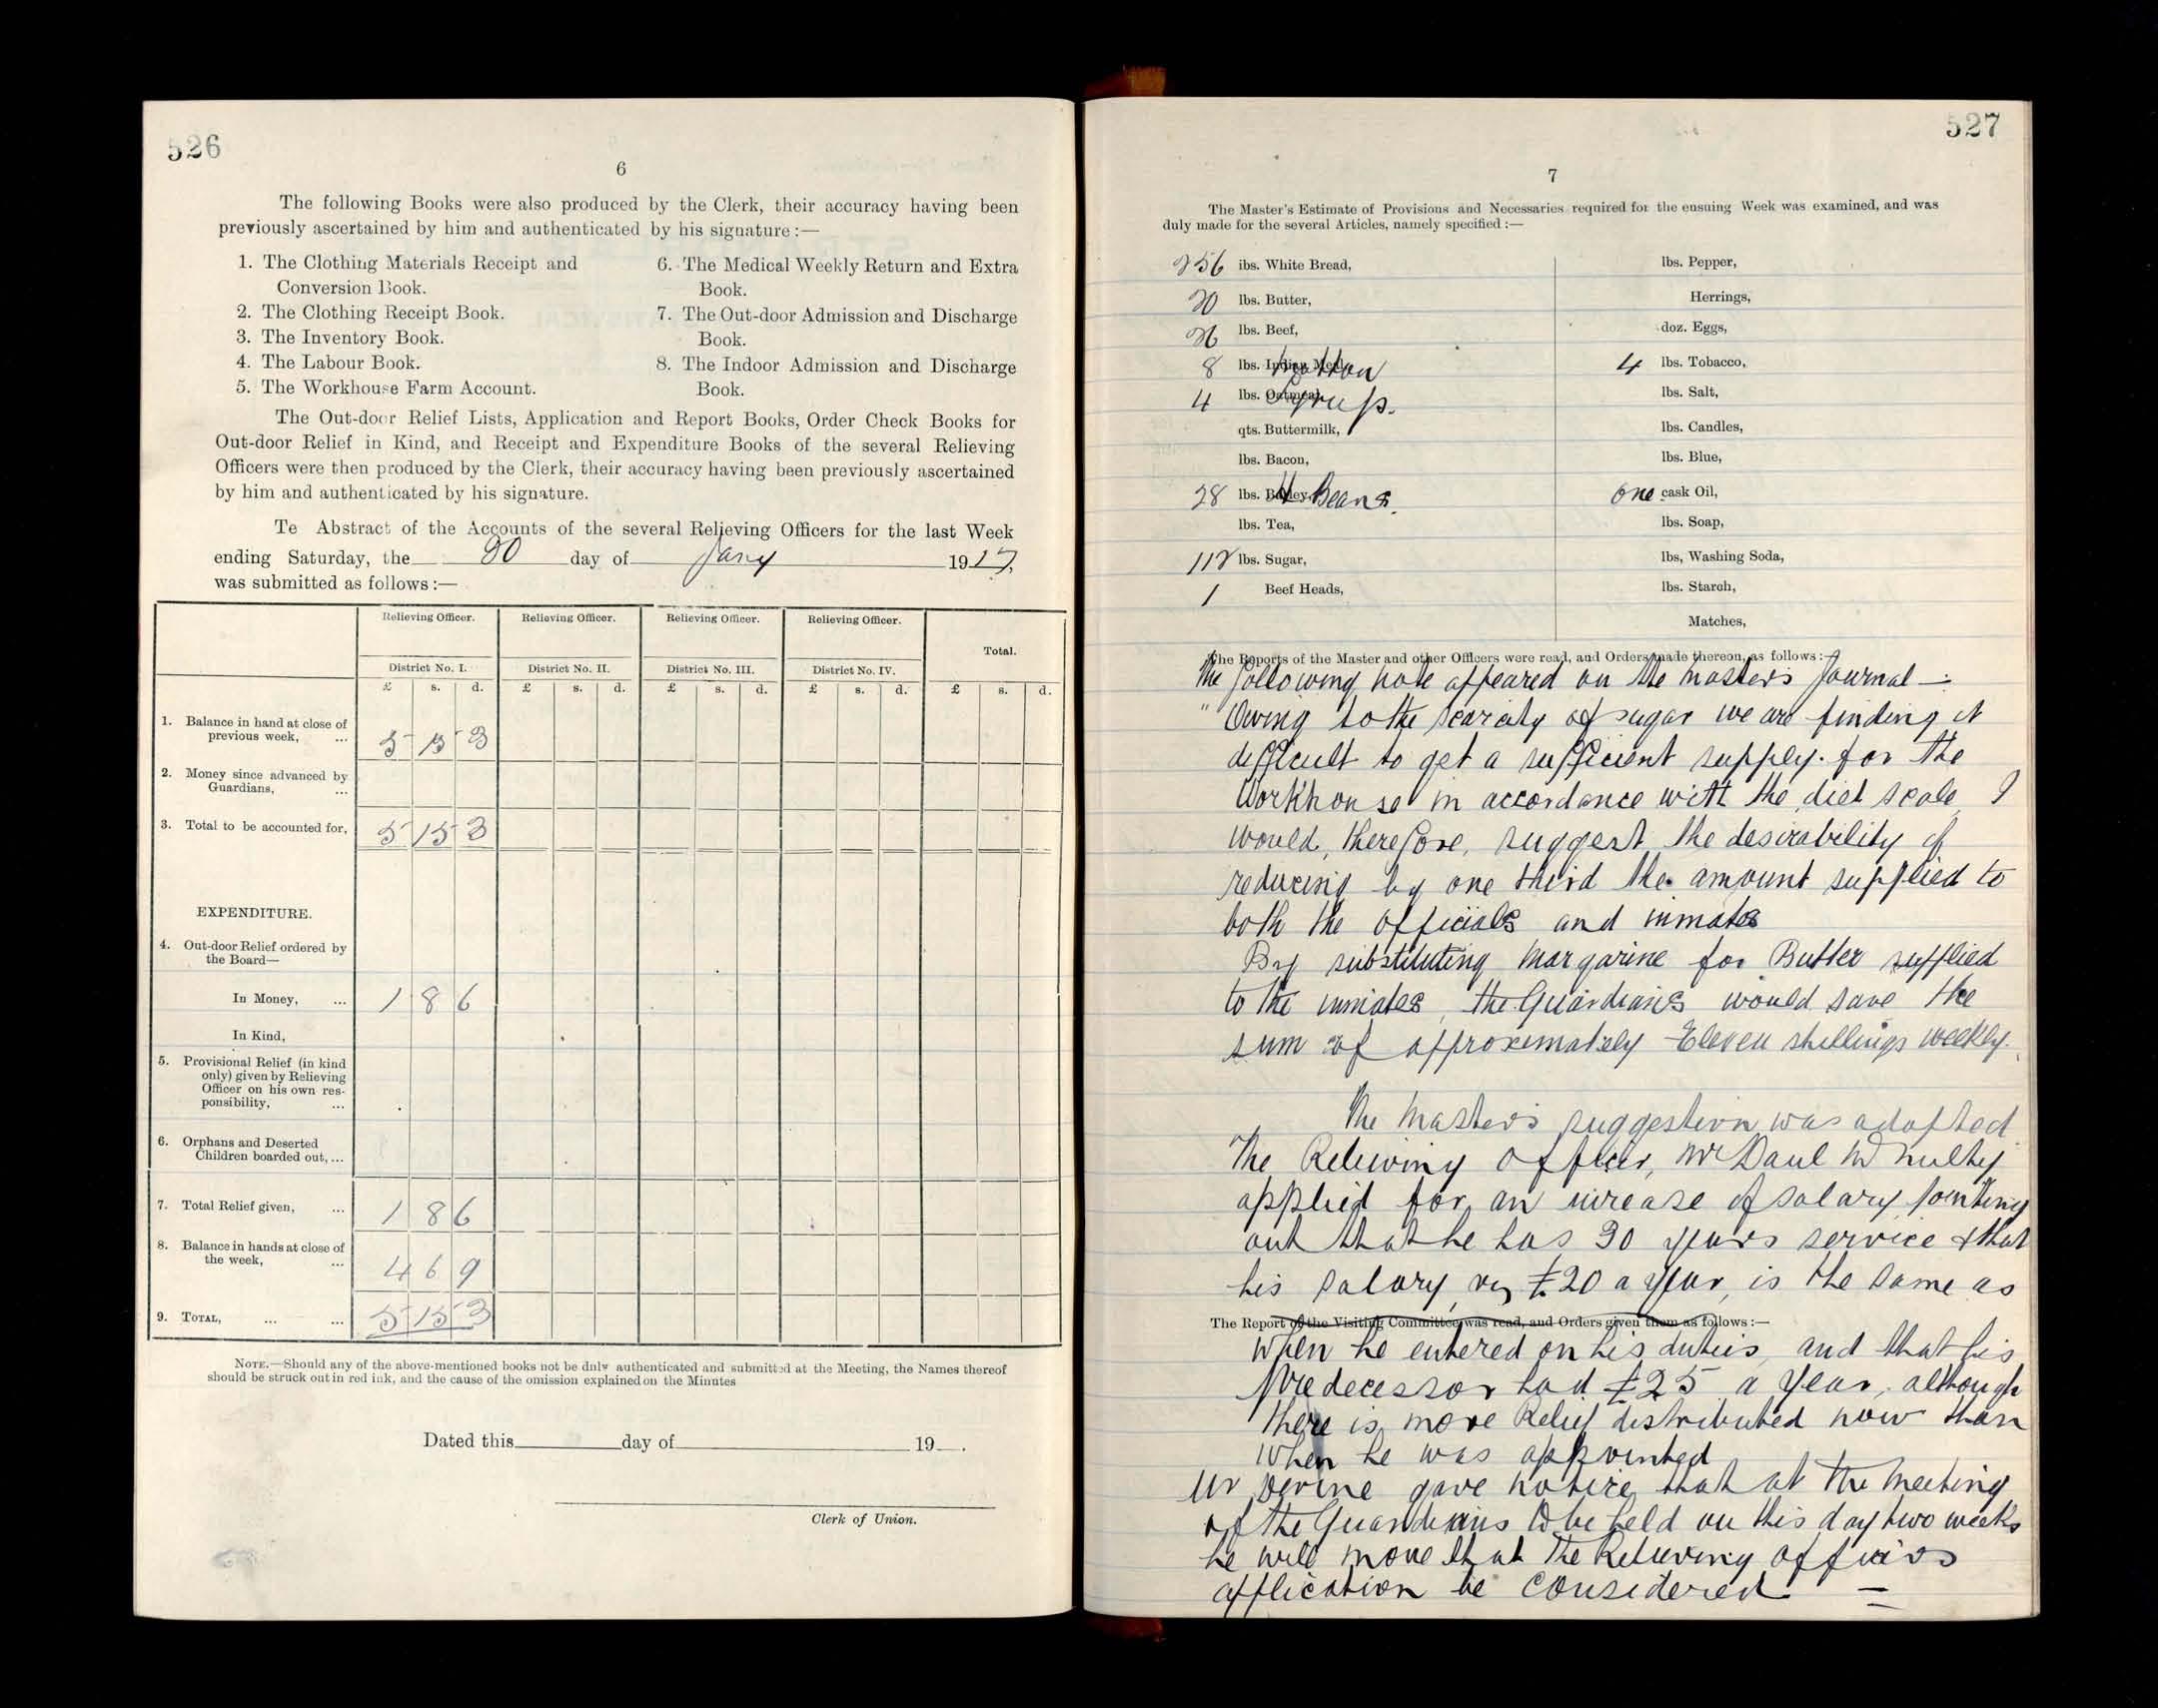 526
6
The following Books were also produced by the Clerk, their accuracy having been
previously ascertained by him and authenticated by his signature :—
1. The Clothing Materials Receipt and
Conversion Book.
2. The Clothing Receipt Book.
3. The Inventory Book.
4. The Labour Book.
5. The Workhouse Farm Account.
6. The Medical Weekly Return and Extra
Book.
7. The Out-door Admission and Discharge
Book.
8. The Indoor Admission and Discharge
Book.
The Out-door Relief Lists, Application and Report Books, Order Check Books for
Out-door Relief in Kind, and Receipt and Expenditure Books of the several Relieving
Officers were then produced by the Clerk, their accuracy having been previously ascertained
by him and authenticated by his signature.
Te Abstract of the Accounts of the several Relieving Officers for the last Week
ending Saturday, the day of Jany 1917,
was submitted as follows :—
Relieving Officer. Relieving Officer. Relieving Officer. Relieving Officer. Total.
District No. I. District No. II. District No. III. District No. IV.
£ s. d. £ s. d. £ s. d. £ s. d. £ s. d.
1. Balance in hand at close of
previous week, ... 5 15 3
2. Money since advanced by
Guardians, ...
3. Total to be accounted for, 5 15 3
EXPENDITURE.
4. Out-door Relief ordered by
the Board—
In Money, ... 1 8 6
In Kind,
5. Provisional Relief (in kind
only) given by Relieving
Officer on his own res-
ponsibility, ...
6. Orphans and Deserted
Children boarded out, ...
7. Total Relief given, ... 1 8 6
8. Balance in hands at close of
the week, ... 4 6 9
9. TOTAL, ... ... 5 15 3
NOTE.—Should any of the above-mentioned books not be duly authenticated and submitted at the Meeting, the Names thereof
should be struck out in red ink, and the cause of the omission explained on the Minutes
Dated this day of 19 .
Clerk of Union.
527
7
The Master's Estimate of Provisions and Necessaries required for the ensuing Week was examined, and was
duly made for the several Articles, namely specified :—
256 lbs. White Bread,
20 lbs. Butter,
26 lbs. Beef,
8 lbs. Indian Meal, Mutton
4 lbs. Oatmeal, Syrup.
qts. Buttermilk,
lbs. Bacon,
28 lbs. Barley, H Beans.
lbs. Tea,
112 lbs. Sugar,
1 Beef Heads,
lbs. Pepper,
Herrings,
doz. Eggs,
4 lbs. Tobacco,
lbs. Salt,
lbs. Candles,
lbs. Blue,
one cask Oil,
lbs. Soap,
lbs, Washing Soda,
lbs. Starch,
Matches,
The Reports of the Master and other Officers were read, and Orders made thereon, as follows :—
The following note appeared on the masters Journal —:
" Owing to the scarcity of sugar we are finding it
difficult to get a sufficient supply. for the
Workhouse in accordance with the diet scale, I
would, therefore, suggest the desirability of
reducing by one third the amount supplied to
both the officials and inmates
By substituting Margarine for Butter supplied
to the inmates, the Guardians would save the
sum of approximately Eleven shillings weekly.
The Master's suggestion was adopted
The Relieving Officer, Mr Paul McNulty
applied for an increase of salary pointing
out that he has 30 years service & that
his salary, viz £20 a year, is the same as
The Report of the Visiting Committee was read, and Orders given them as follows :—
When he entered on his duties, and that his
Predecessor had £25 a year, although
there is more Relief distributed now than
when he was appointed
Mr Devine gave notice that at the meeting
of the Guardians to be held on this day two weeks
he will move that the Relieving officers
application be considered —